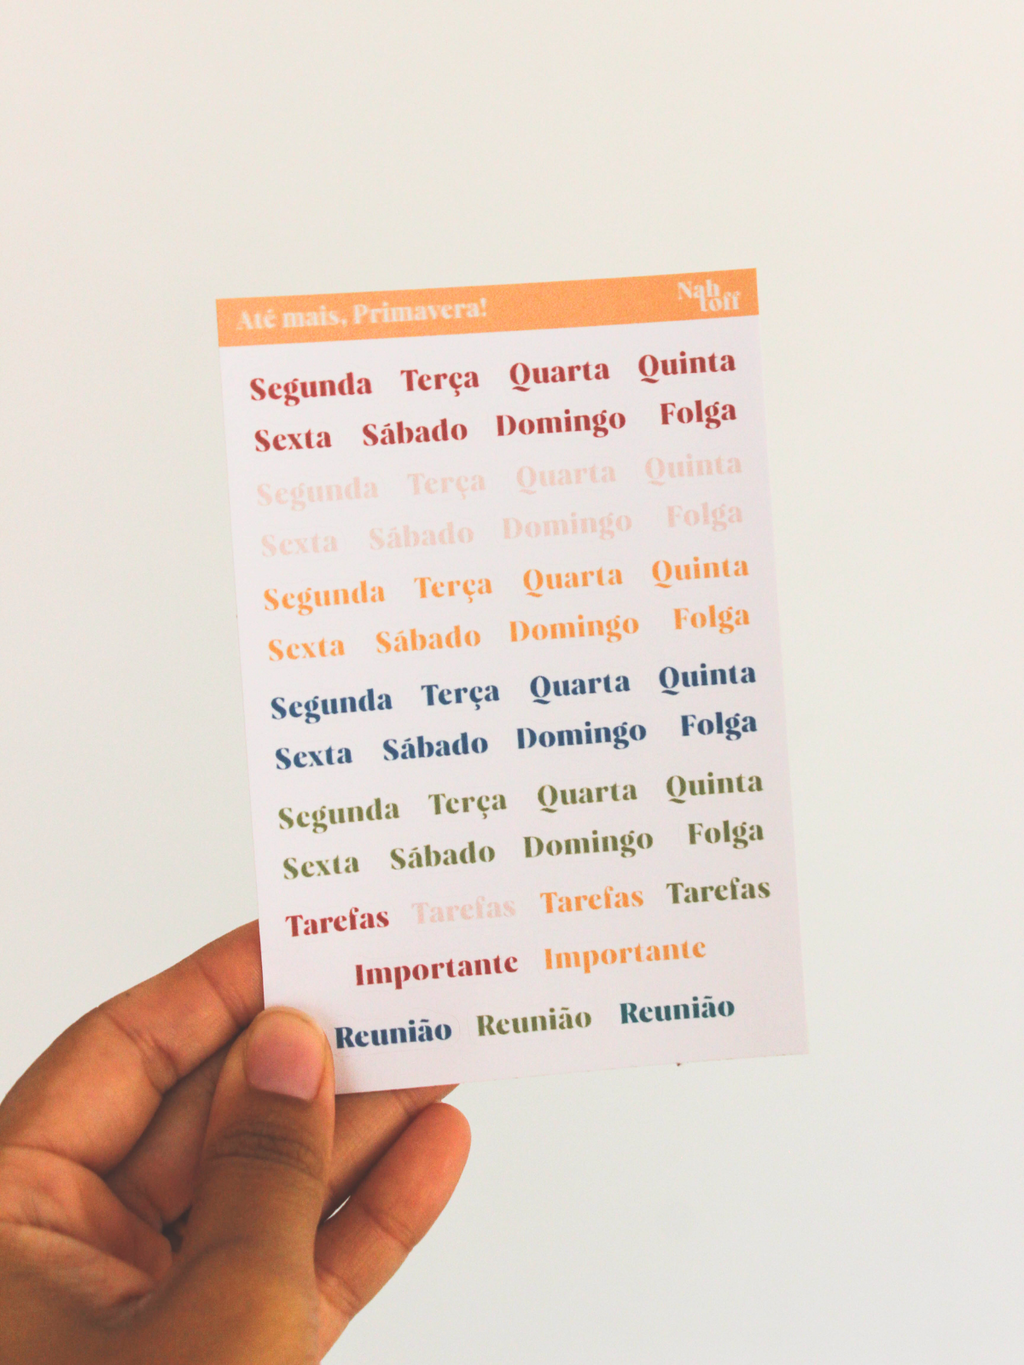 Até mais, Primavera!
Nah
toff
Segunda Terça Quarta Quinta
Sexta Sábado Domingo Folga
Segunda Terça Quarta Quinta
Sexta Sábado Domingo Folga
Segunda Terça Quarta Quinta
Sexta Sábado Domingo Folga
Segunda Terça Quarta Quinta
Sexta Sábado Domingo Folga
Segunda Terça Quarta Quinta
Sexta Sábado Domingo Folga
Tarefas Tarefas Tarefas Tarefas
Importante Importante
Reunião Reunião Reunião